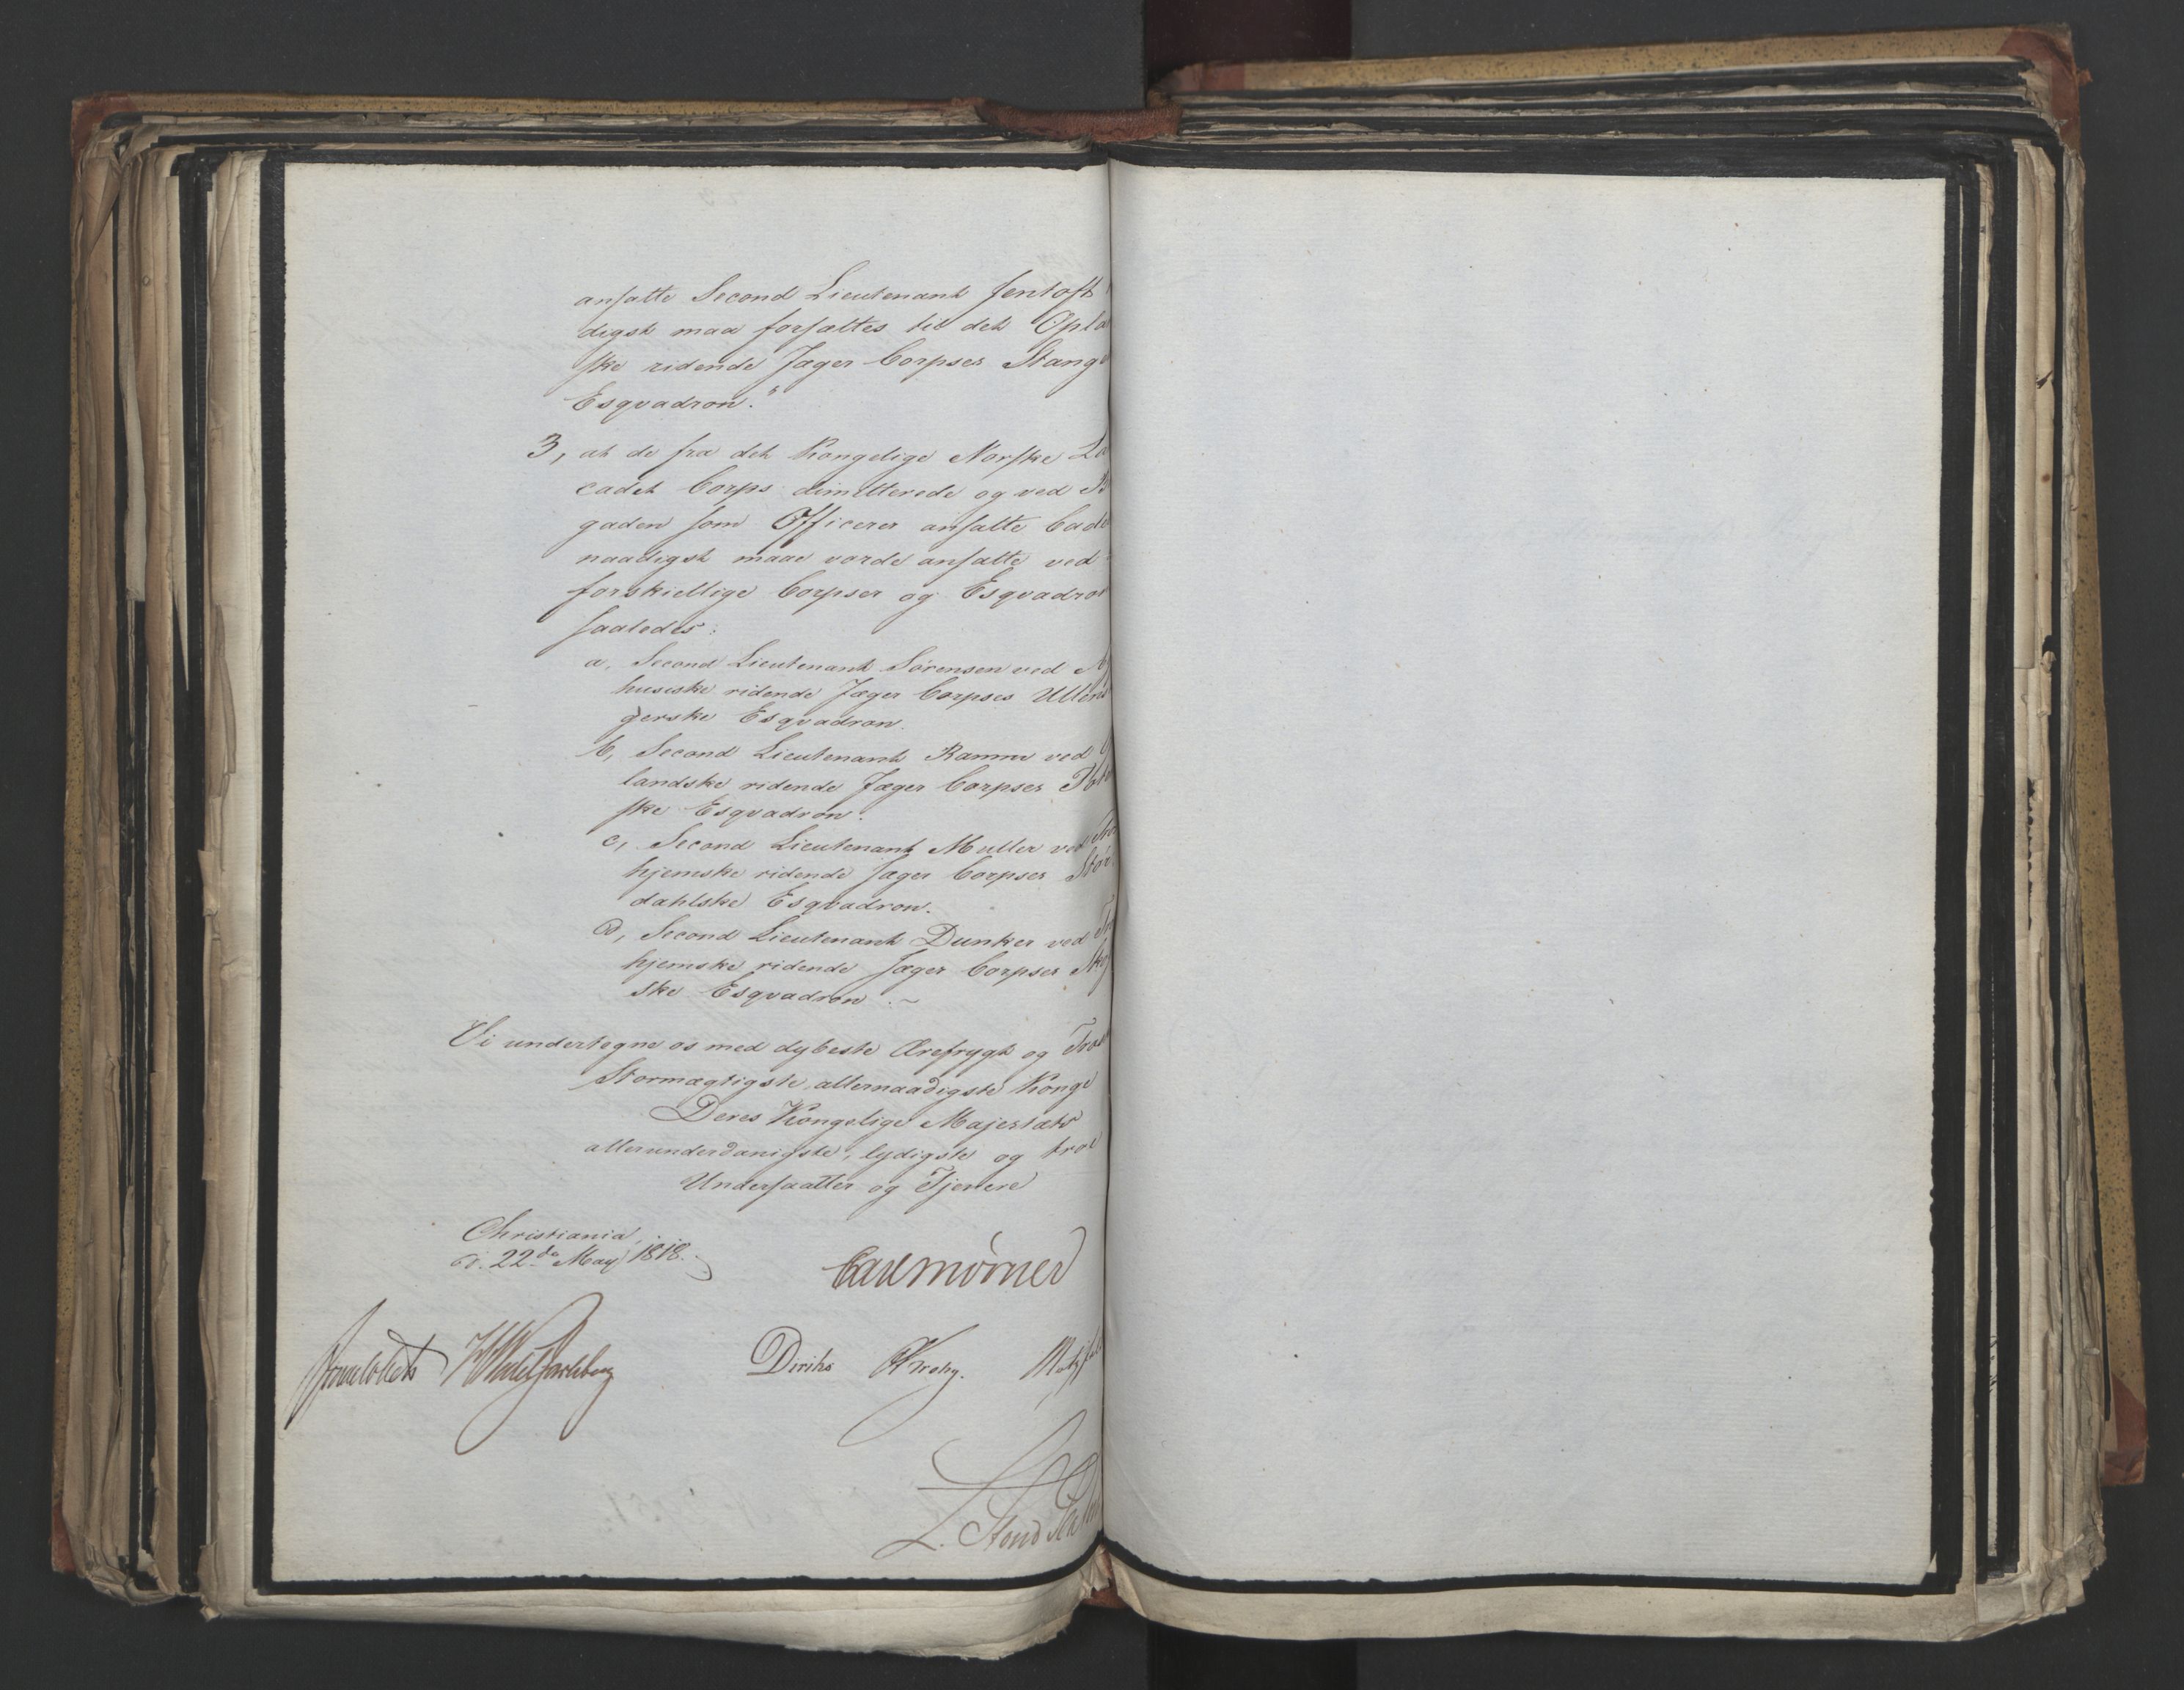 ansatte Second Lieutenant Jentoft
digst maa forsættes til det Opla
ske ridende Jæger Corpses Stang
Esqvadron."
3, at de fra det Kongelige Norske La
cadet Corps dimitterede og ved B
gaden som Officerer ansatte Cade
naadigst maae vorde ansatte ved
forskiellige Corpser og Esqvadron
saaledes:
a, Second Lieutenant Sörensen ved A
husiske ridende Jæger Corpses Ullens
gerske Esqvadron.
b, Second Lieutenant Ramm ved O
landske ridende Jæger Corpses Tot
ske Esqvadron.
c, Second Lieutenant Muller ved Tro
hjemske ridende Jæger Corpses Stör
dahlske Esqvadron.
d, Second Lieutenant Dunker ved Tr
hjemske ridende Jæger Corpses Sko
ske Esqvadron.~
Vi undertegne os med dybeste Ærefrygt og Tros
Stormægtigste, allernaadigste Konge
Deres Kongelige Majestæts
allerunderdanigste, lydigste og troe
Undersaatter og Tjenere
Christiania,
d. 22de May 1818.
Carl Mörner
Sommeldt HWedelJarlsberg Diriks Krohg. Motzfel
L. Stoud Platou